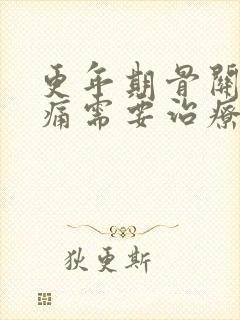 更年期骨關
痛需要治療
狄更斯